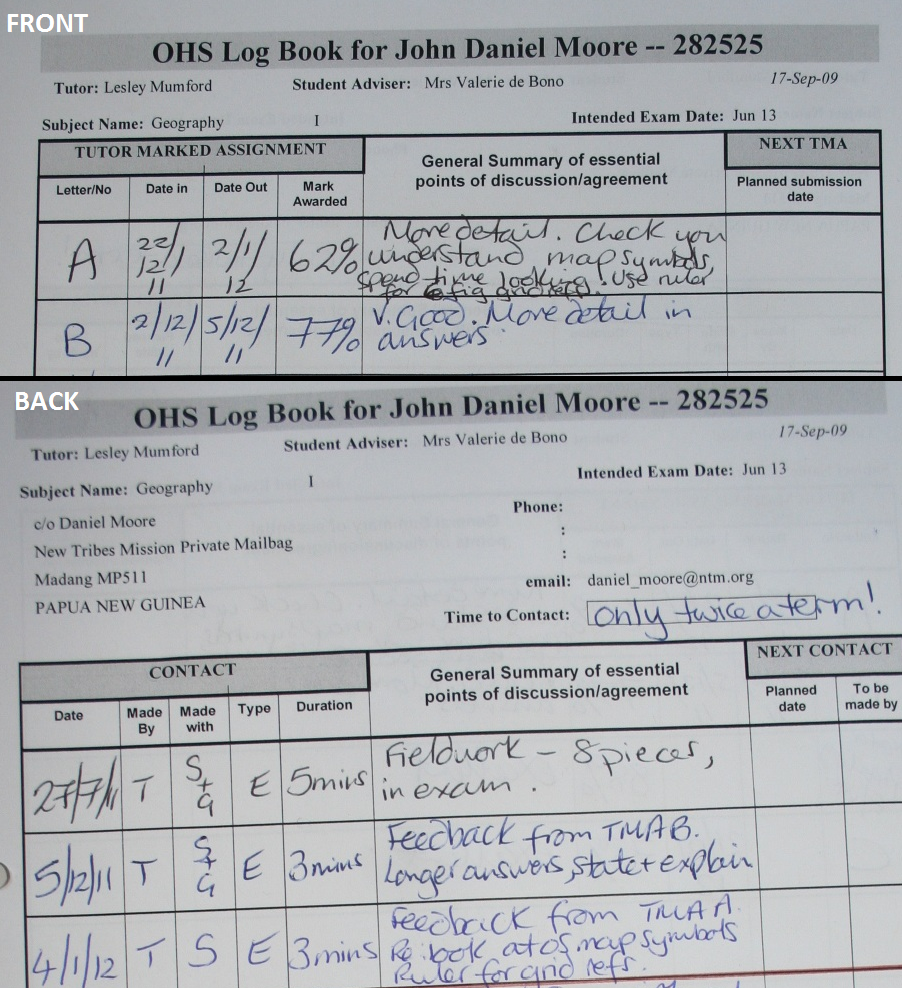 FRONT
OHS Log Book for John Daniel Moore -- 282525
Tutor: Lesley Mumford Student Adviser: Mrs Valerie de Bono 17-Sep-09
Subject Name: Geography I Intended Exam Date: Jun 13
TUTOR MARKED ASSIGNMENT General Summary of essential points of discussion/agreement NEXT TMA
Letter/No Date in Date Out Mark Awarded Planned submission date
A 22/12/11 2/1/12 62% More detail. Check you
understand map symbols,
spend time looking! Use ruler
for 6 fig grid refs.
B 2/12/11 5/12/11 77% V. Good. More detail in
answers
BACK
OHS Log Book for John Daniel Moore -- 282525
Tutor: Lesley Mumford Student Adviser: Mrs Valerie de Bono 17-Sep-09
Subject Name: Geography I Intended Exam Date: Jun 13
c/o Daniel Moore Phone:
New Tribes Mission Private Mailbag :
Madang MP511 :
PAPUA NEW GUINEA email: daniel_moore@ntm.org
Time to Contact: only twice a term!
CONTACT General Summary of essential points of discussion/agreement NEXT CONTACT
Date Made By Made with Type Duration Planned date To be made by
27/7/11 T S+G E 5mins Fieldwork – 8 pieces,
in exam.
5/12/11 T S+G E 3mins Feedback from TMA B.
Longer answers, state + explain
4/1/12 T S E 3mins Feedback from TMA A.
Re: look at OS map symbols
Ruler for grid refs.